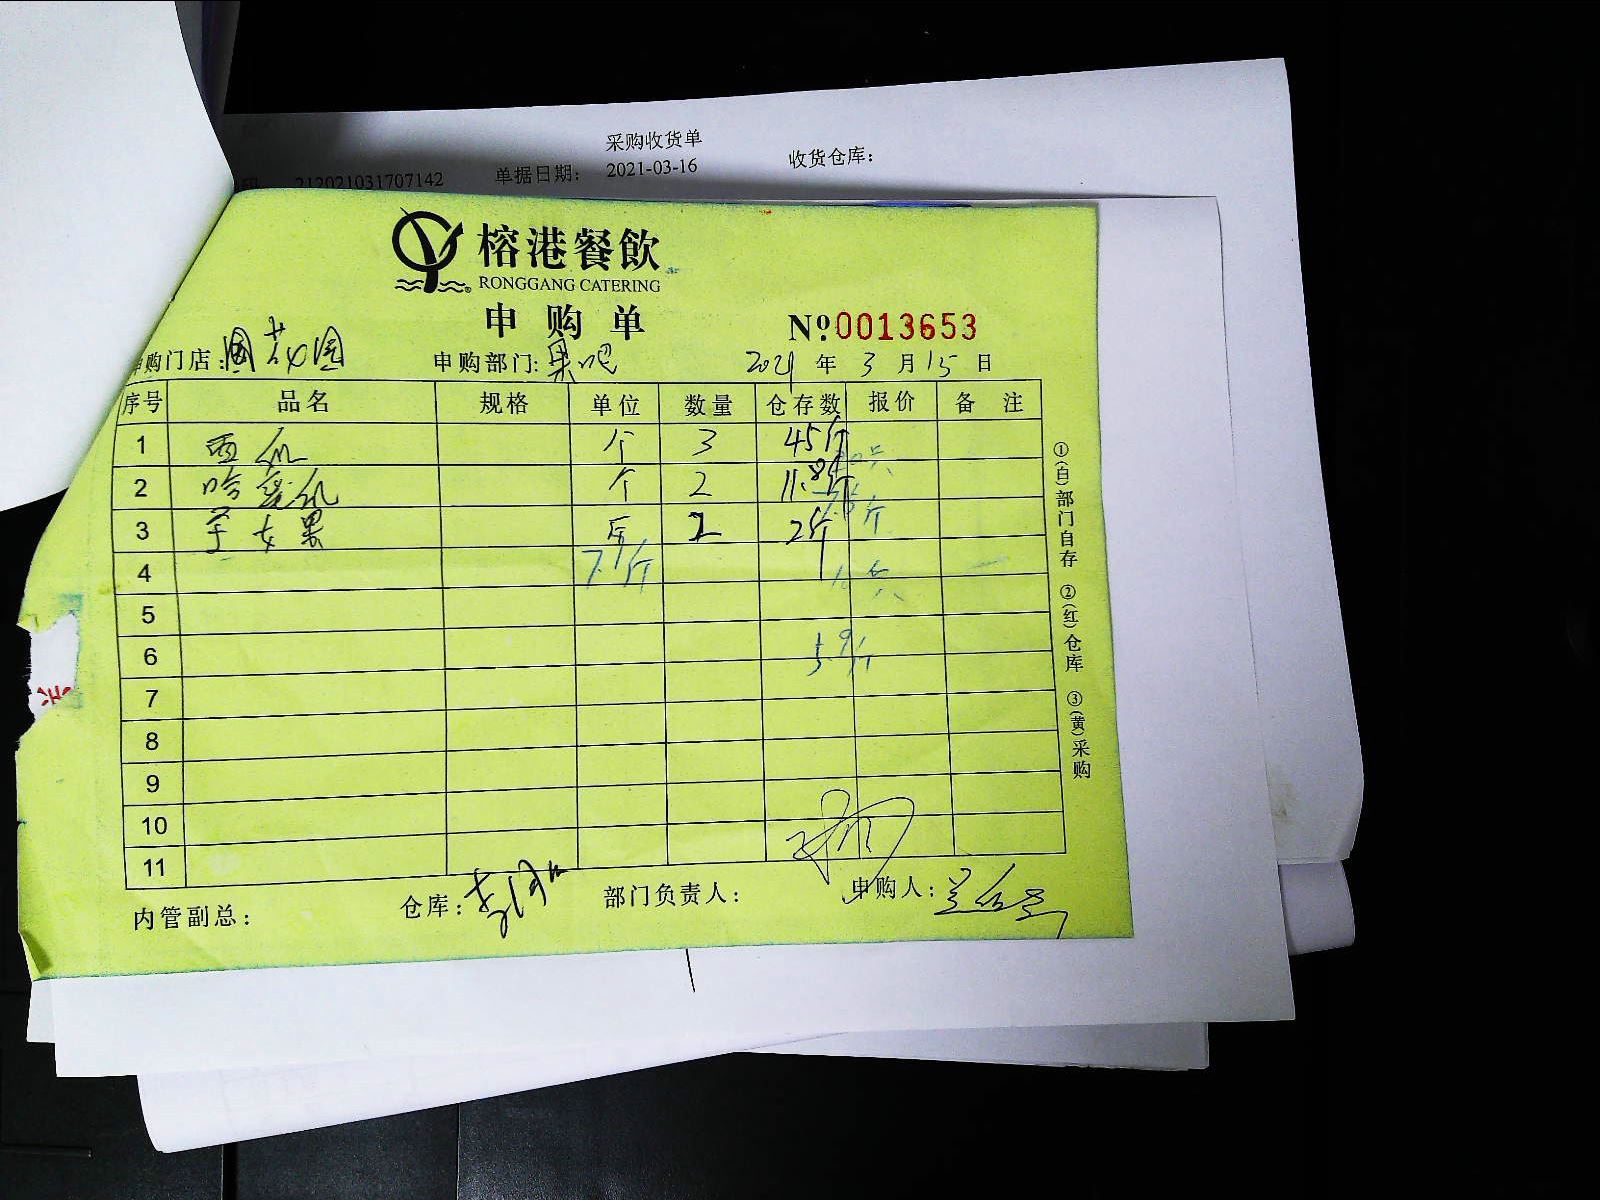 采购收货单
212021031707142 单据日期: 2021-03-16 收货仓库:
榕港餐飲
RONGGANG CATERING
申购单 № 0013653
购门店: 花园 申购部门: 果吧 2021 年 3 月 15 日
序号 品名 规格 单位 数量 仓存数 报价 备注
1 西瓜 个 3 45斤
2 哈蜜瓜 个 2 11.8斤
3 子女果 斤 2 2斤
4 7.1斤
5
6 5.9斤
7
8
9
10
11
内管副总: 仓库: 部门负责人: 申购人:
①(白)部门自存 ②(红)仓库 ③(黄)采购